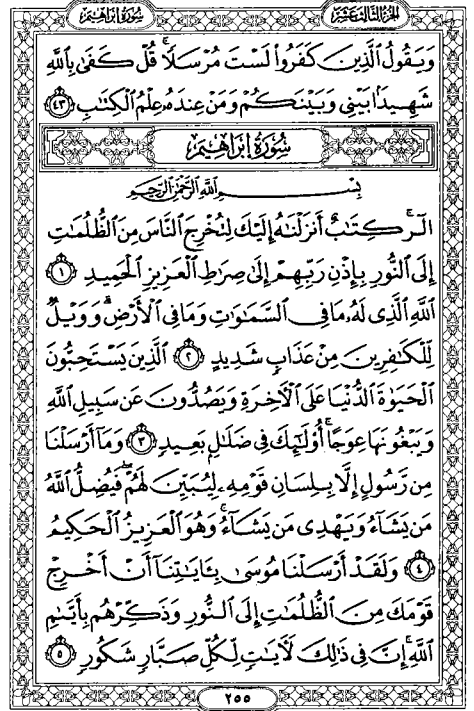 الجزء الثالث عشر
سورة إبراهيم
وَيَقُولُ الَّذِينَ كَفَرُوا لَسْتَ مُرْسَلًا ۚ قُلْ كَفَىٰ بِاللَّهِ
شَهِيدًا بَيْنِي وَبَيْنَكُمْ وَمَنْ عِندَهُ عِلْمُ الْكِتَابِ ٤٣
سُورَةُ إِبْرَاهِيمَ
بِسْمِ اللَّهِ الرَّحْمَٰنِ الرَّحِيمِ
الٓر ۚ كِتَابٌ أَنزَلْنَاهُ إِلَيْكَ لِتُخْرِجَ النَّاسَ مِنَ الظُّلُمَاتِ
إِلَى النُّورِ بِإِذْنِ رَبِّهِمْ إِلَىٰ صِرَاطِ الْعَزِيزِ الْحَمِيدِ ١
اللَّهِ الَّذِي لَهُ مَا فِي السَّمَاوَاتِ وَمَا فِي الْأَرْضِ ۗ وَوَيْلٌ
لِّلْكَافِرِينَ مِنْ عَذَابٍ شَدِيدٍ ٢ الَّذِينَ يَسْتَحِبُّونَ
الْحَيَاةَ الدُّنْيَا عَلَى الْآخِرَةِ وَيَصُدُّونَ عَن سَبِيلِ اللَّهِ
وَيَبْغُونَهَا عِوَجًا ۚ أُولَٰئِكَ فِي ضَلَالٍ بَعِيدٍ ٣ وَمَا أَرْسَلْنَا
مِن رَّسُولٍ إِلَّا بِلِسَانِ قَوْمِهِ لِيُبَيِّنَ لَهُمْ ۖ فَيُضِلُّ اللَّهُ
مَن يَشَاءُ وَيَهْدِي مَن يَشَاءُ ۚ وَهُوَ الْعَزِيزُ الْحَكِيمُ
٤ وَلَقَدْ أَرْسَلْنَا مُوسَىٰ بِآيَاتِنَا أَنْ أَخْرِجْ
قَوْمَكَ مِنَ الظُّلُمَاتِ إِلَى النُّورِ وَذَكِّرْهُم بِأَيَّامِ
اللَّهِ ۚ إِنَّ فِي ذَٰلِكَ لَآيَاتٍ لِّكُلِّ صَبَّارٍ شَكُورٍ ٥
٢٥٥